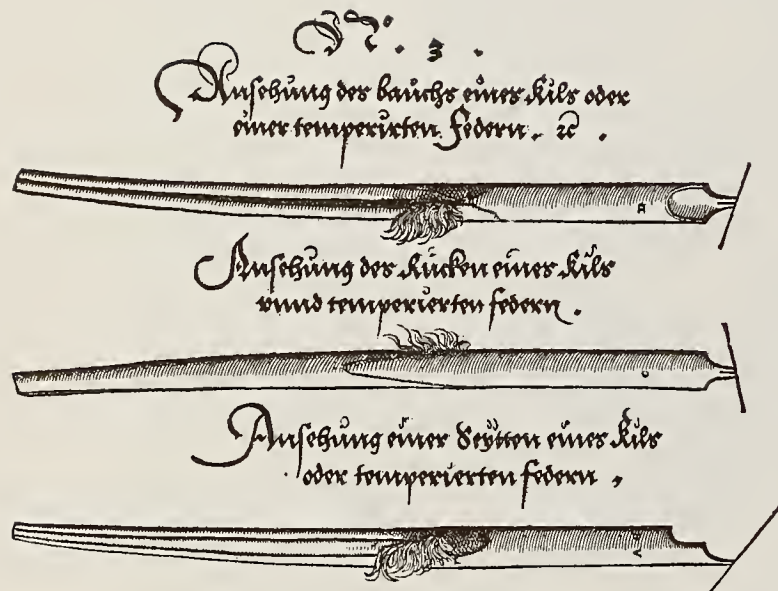 Nº. 3.
Ansehůng des bauchs eines Kils oder
einer temperirten federn. ꝛc.
A
Ansehůng des Rücken eines Kils
vnnd temperierten federn.
Ansehůng einer Seÿtten eines Kils
oder temperierten federn.